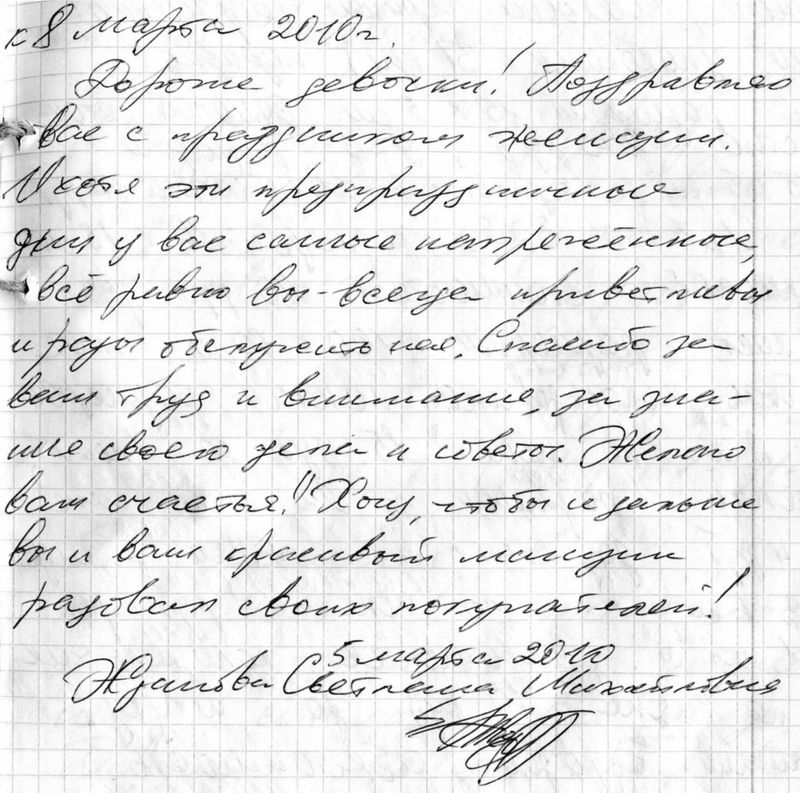 к 8 марта 2010г.
Дорогие девочки! Поздравляю
вас с праздником женщин.
И хотя эти предпраздничные
дни у вас самые напряжённые,
всё равно вы - всегда приветливы
и рады обслужить нас. Спасибо за
ваш труд и внимание, за зна-
ние своего дела и советы. Желаю
вам счастья!! Хочу, чтобы и дальше
вы и ваш красивый магазин
радовали своих покупателей!
5 марта 2010
Жданова Светлана Михайловна